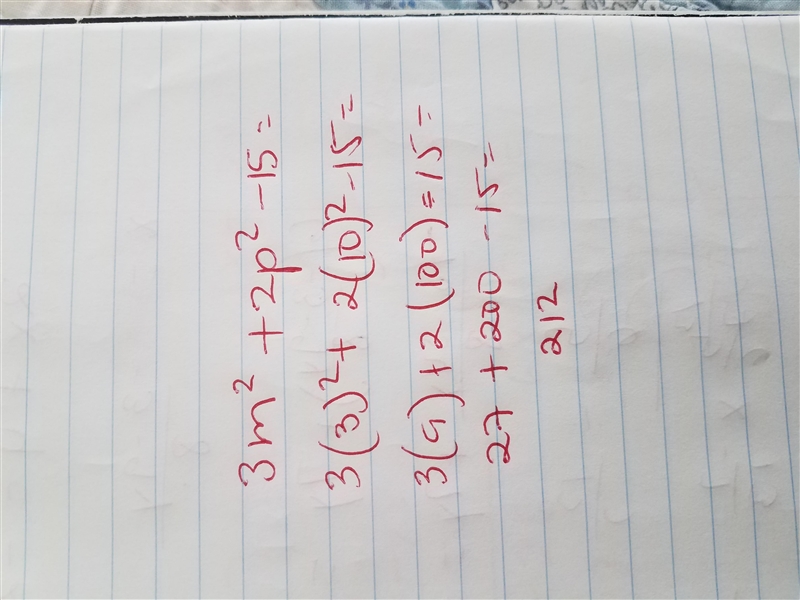 3m² + 2p² - 15 =
3(3)² + 2(10)² - 15 =
3(9) + 2(100) = 15 =
27 + 200 - 15 =
212